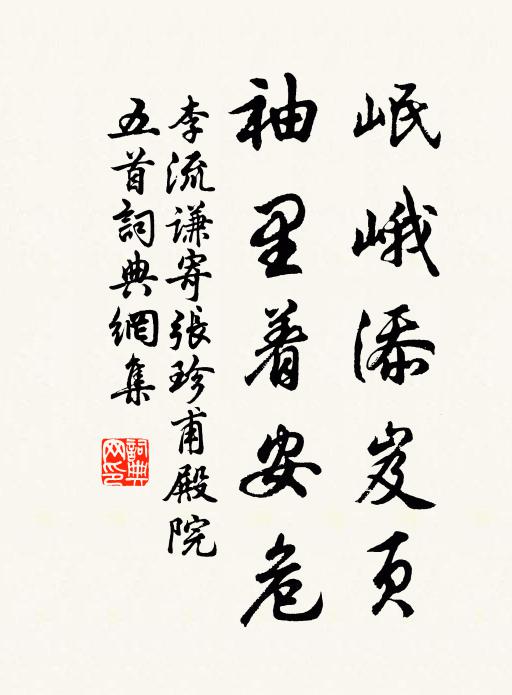 岷峨添岌页
袖里着安危
李流谦寄張珍甫殿院
五首詞典網集
詞典网印